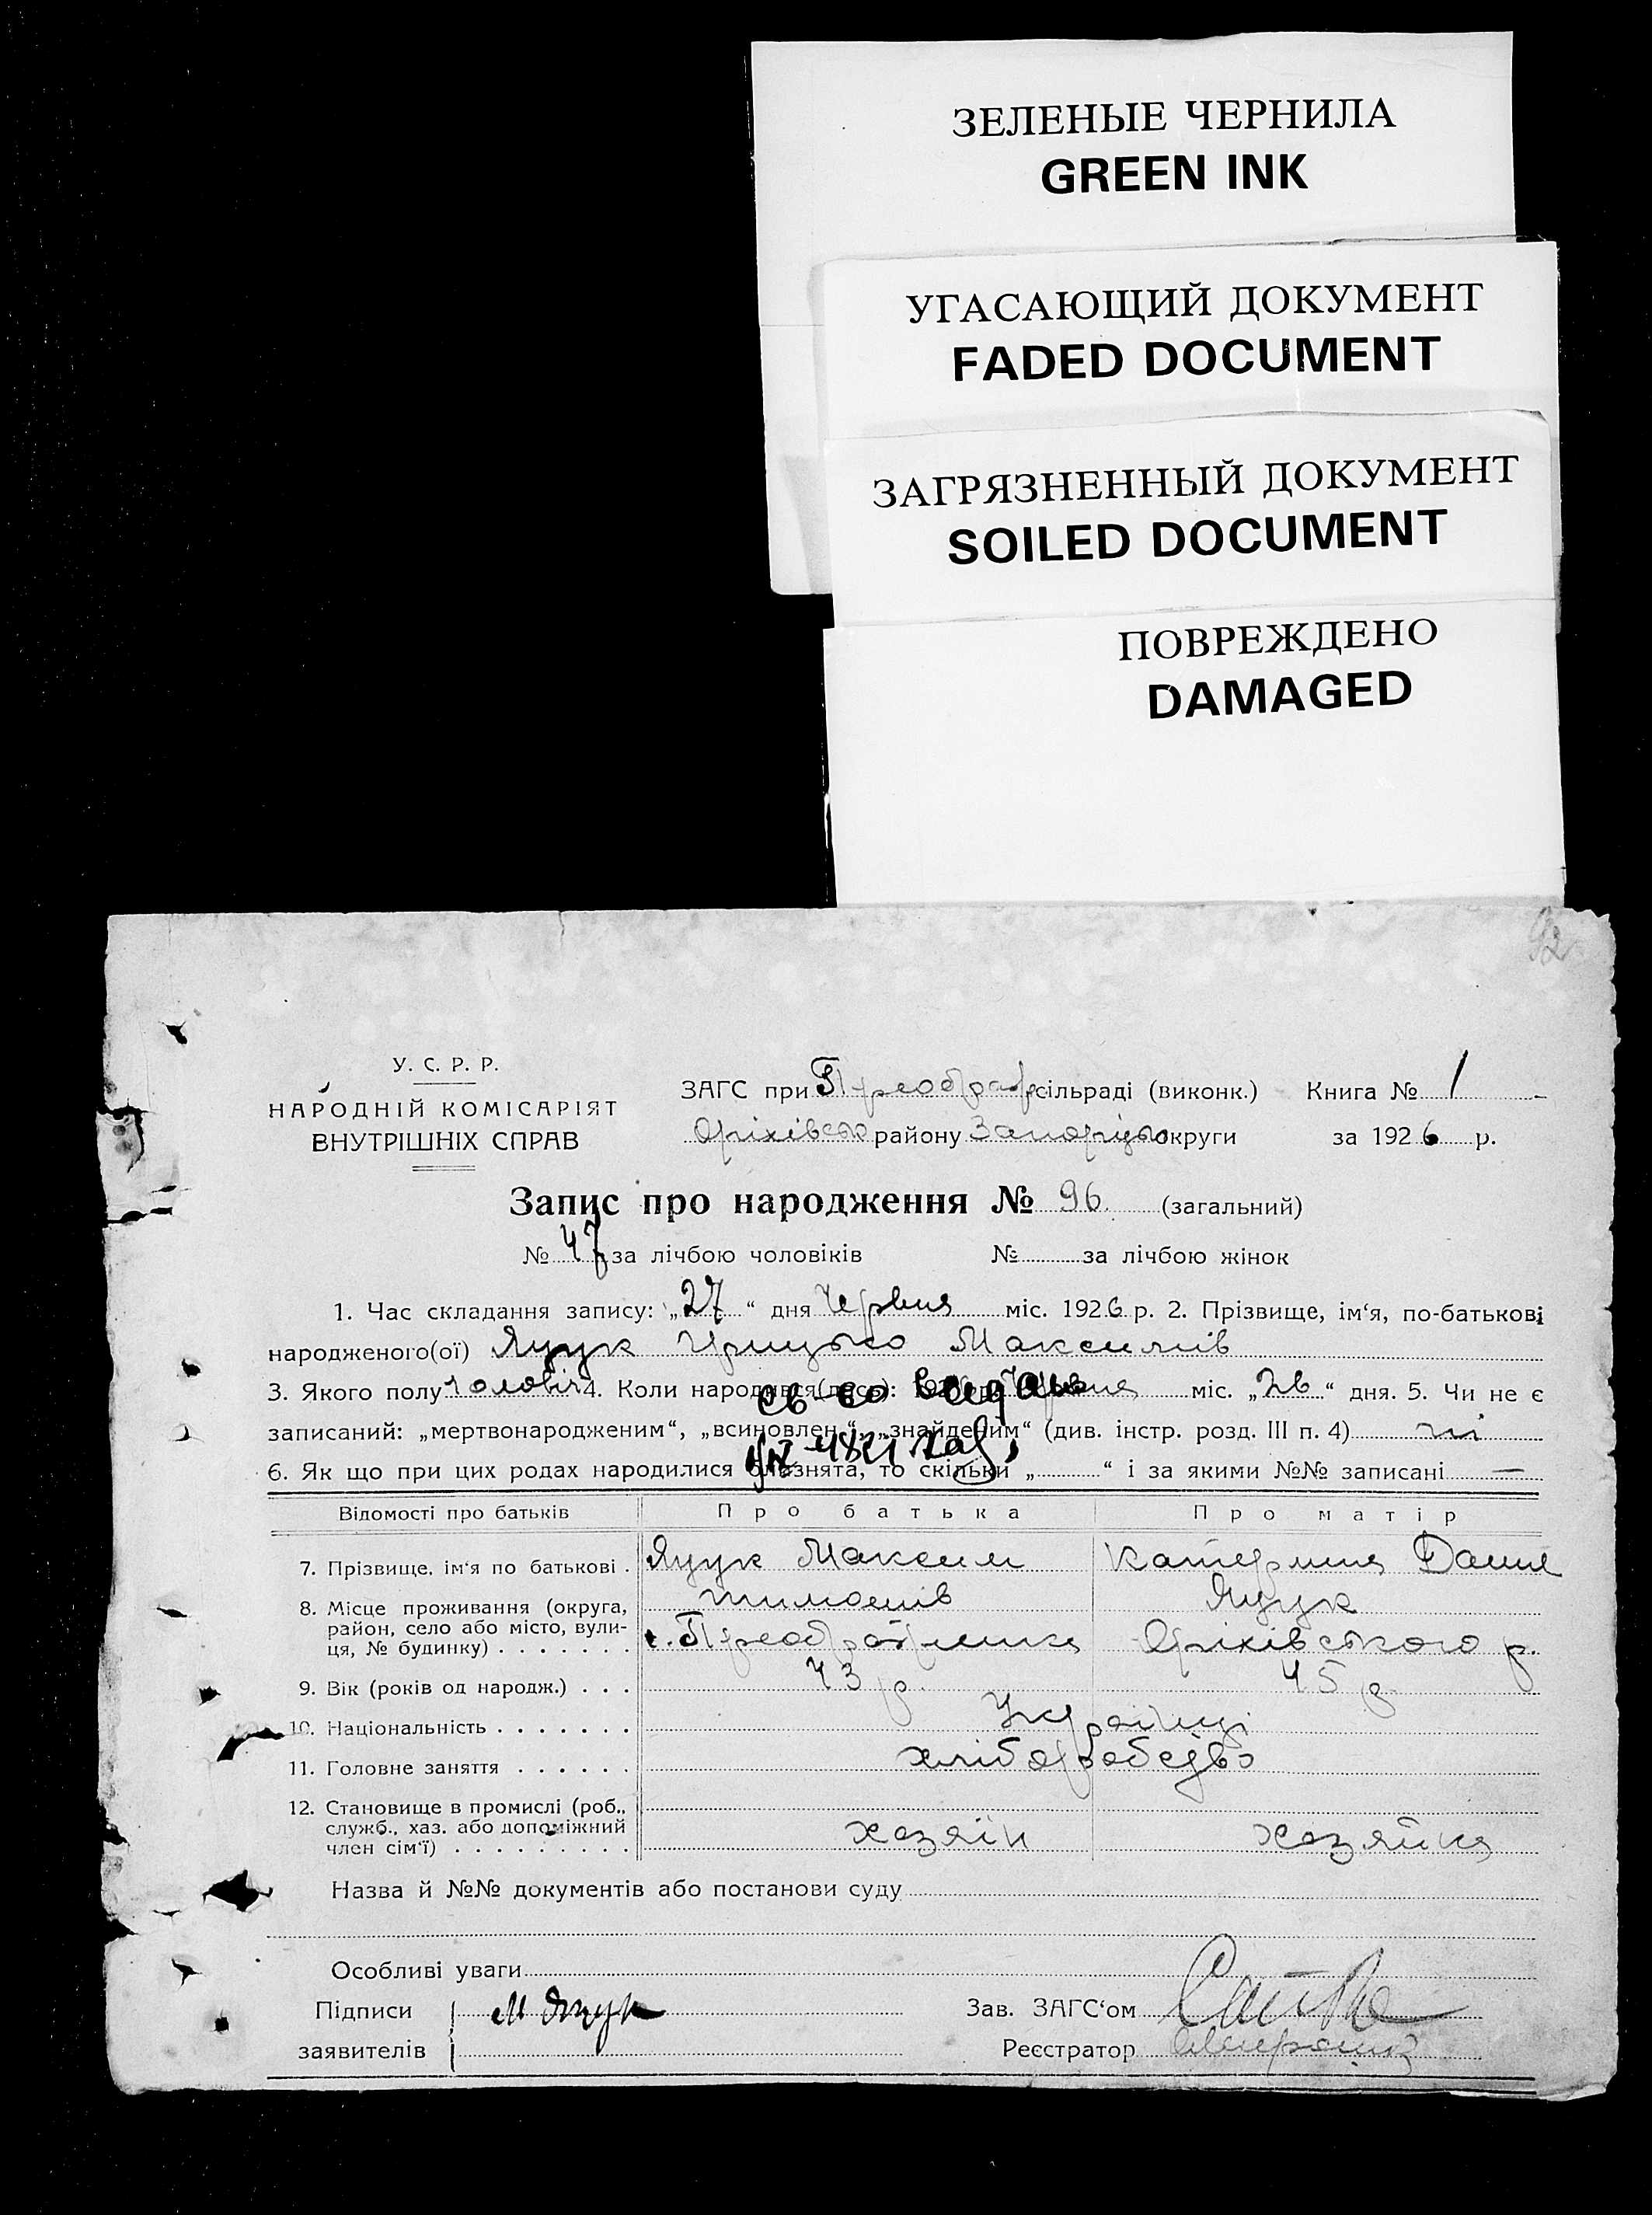 ЗЕЛЕНЫЕ ЧЕРНИЛА
GREEN INK
УГАСАЮЩИЙ ДОКУМЕНТ
FADED DOCUMENT
ЗАГРЯЗНЕННЫЙ ДОКУМЕНТ
SOILED DOCUMENT
ПОВРЕЖДЕНО
DAMAGED
92
У. С. Р. Р.
НАРОДНІЙ КОМІСАРІЯТ
ВНУТРІШНІХ СПРАВ
ЗАГС при Преображ сільраді (виконк.) Книга № 1
Оріхівсько району Запоріzько округи за 1926 р.
Запис про народження № 96 (загальний)
№ 47 за лічбою чоловіків № за лічбою жінок
1. Час складання запису: „27“ дня Червня міс. 1926 р. 2. Прізвище, ім‘я, по-батькові
народженого(ої) Яцук Грицько Максимів
3. Якого полу чоловіч 4. Коли народився(лась): 1926 р. Червня міс. „26“ дня. 5. Чи не є
св-во видано
записаний: „мертвонародженим“, „всиновлен.“, „знайденим“ (див. інстр. розд. III п. 4) ні
6. Як що при цих родах народилися близнята, то скільки „ “ і за якими №№ записані —
Відомості про батьків Про батька Про матір
7. Прізвище, ім‘я по батькові . Яцук Максим Катерина Данил
8. Місце проживання (округа, тимошів Яцук
район, село або місто, вули-
ця, № будинку) . . . . . . . с. Преображенка Оріхівського р.
9. Вік (років од народж.) . . . 43 р. 45 р
10. Національність . . . . . . . Українці
11. Головне заняття . . . . . . хліборобство
12. Становище в промислі (роб.,
служб., хаз. або допоміжний
член сім‘ї) . . . . . . . . . хазяїн хазяйка
Назва й №№ документів або постанови суду
Особливі уваги
Підписи М Яцук Зав. ЗАГС‘ом
заявителів Реєстратор